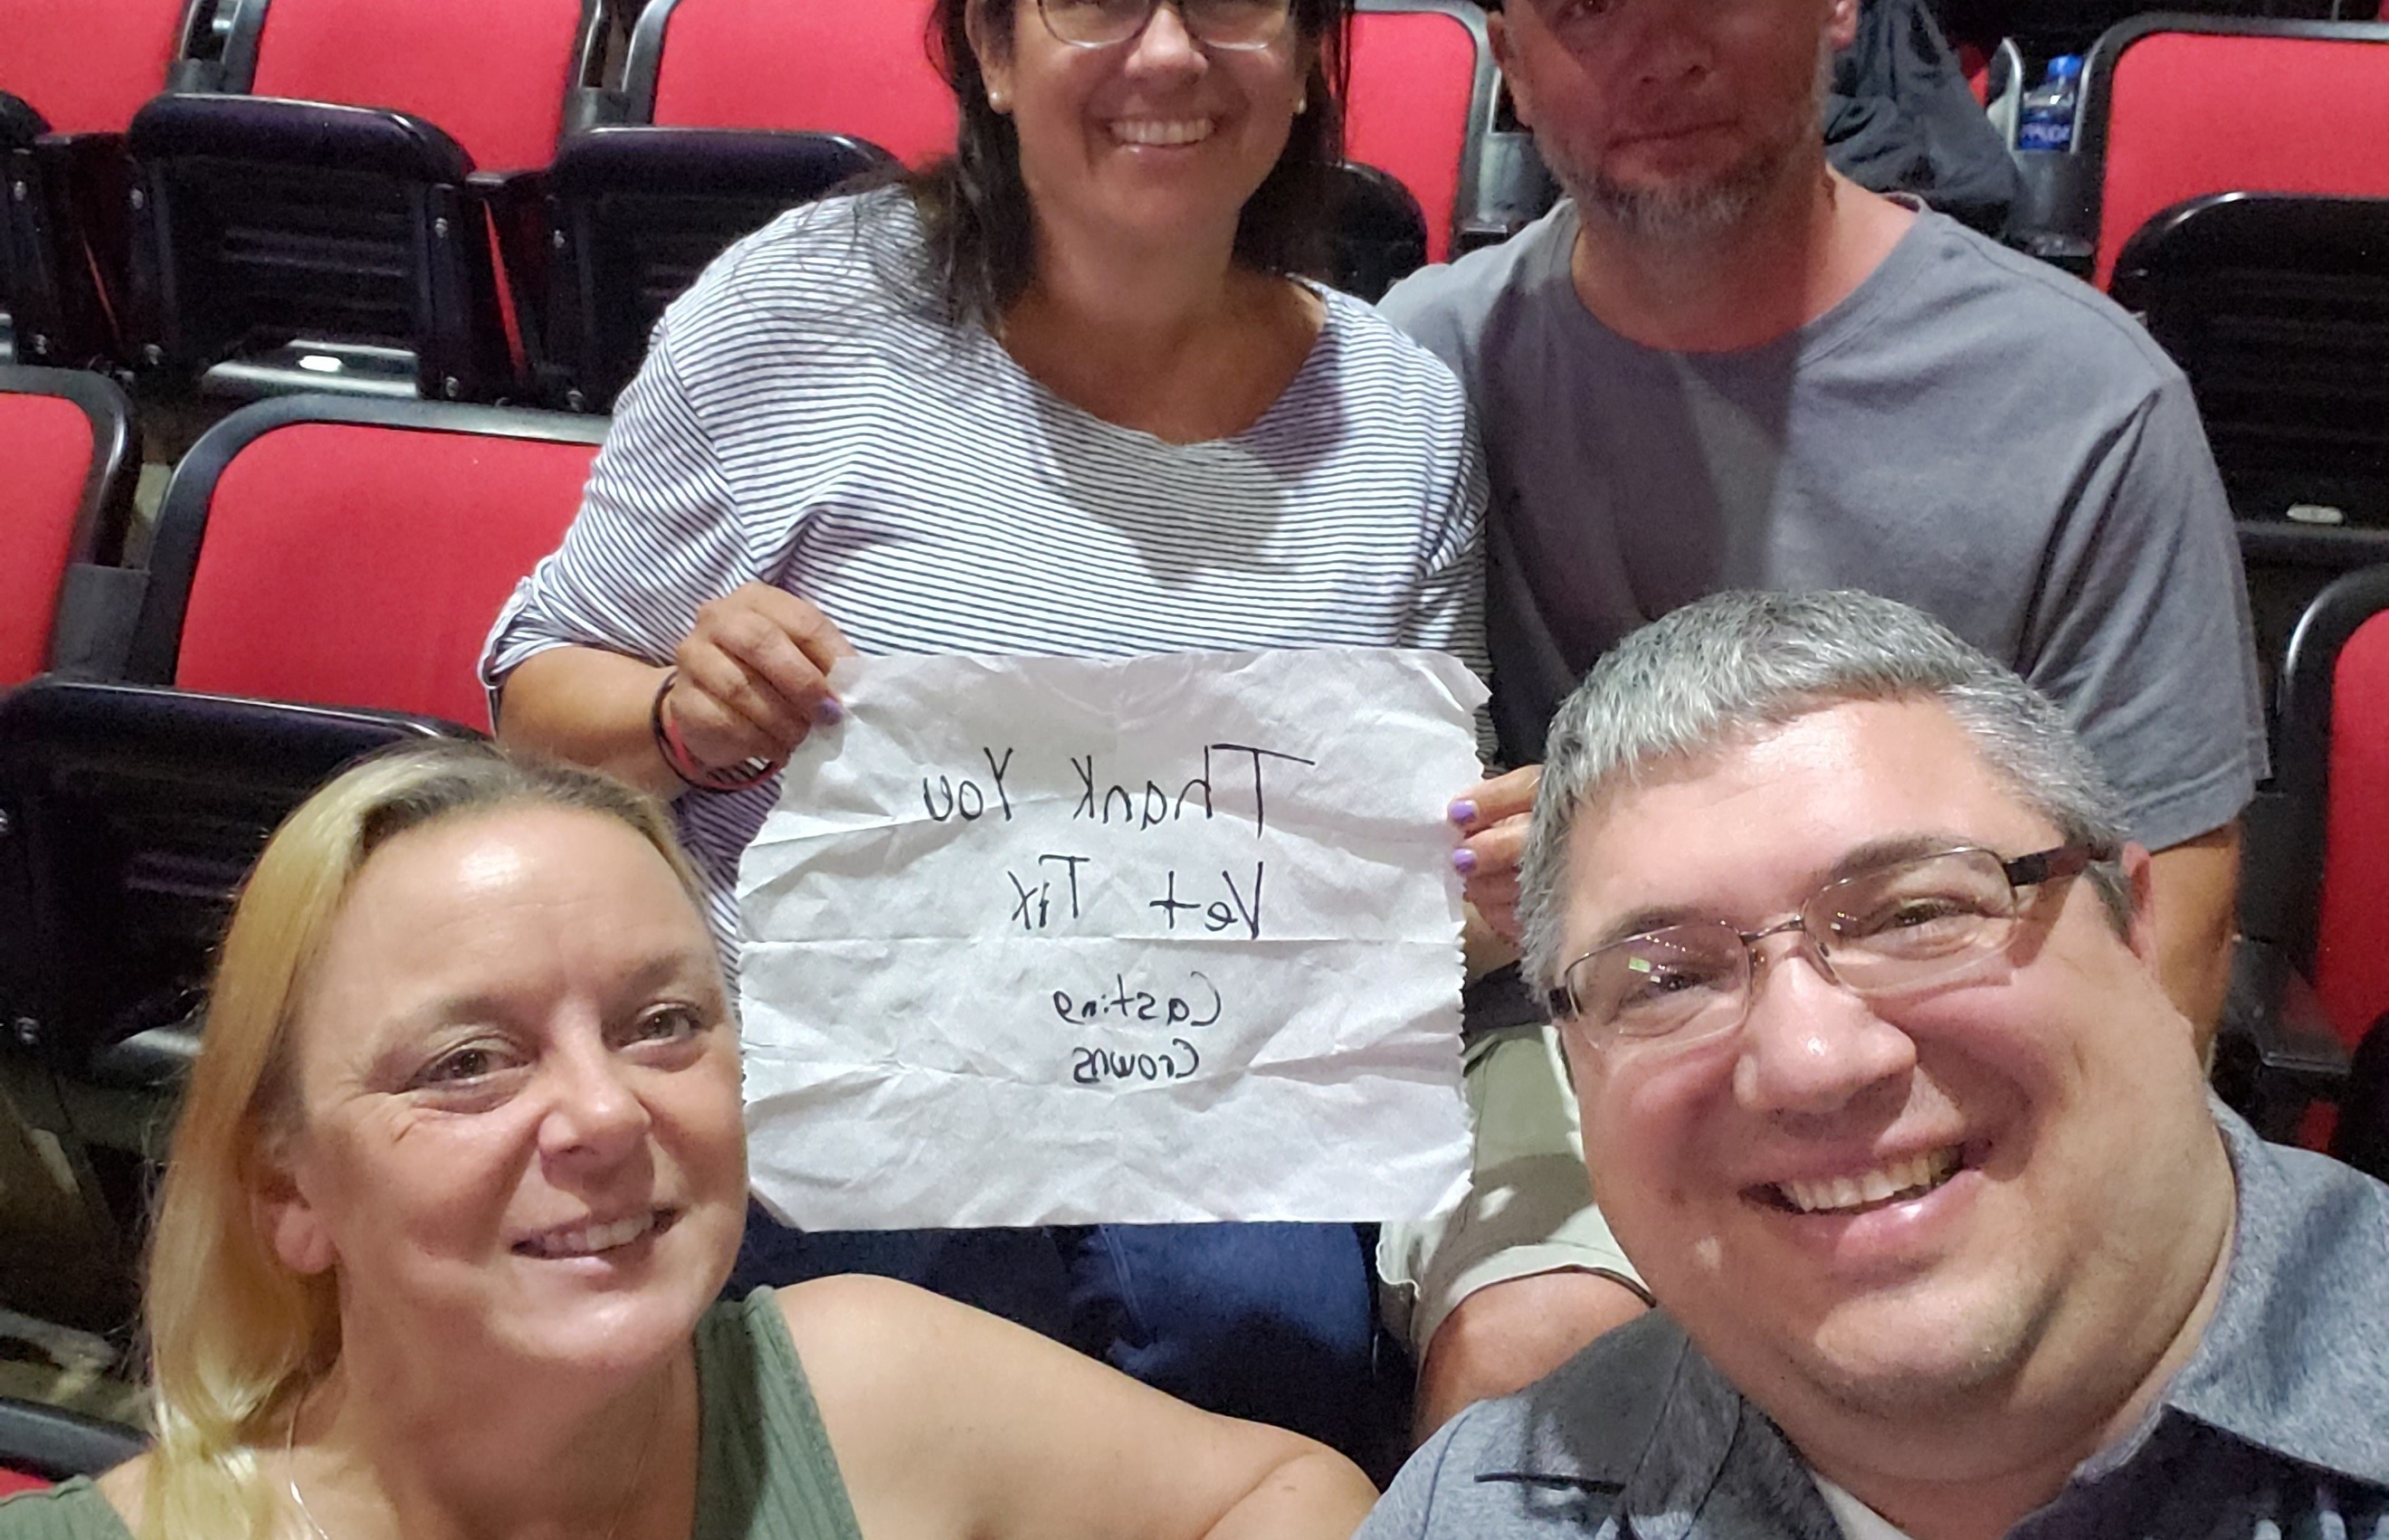 Thank You
Vet Tix
Casting
Crowns